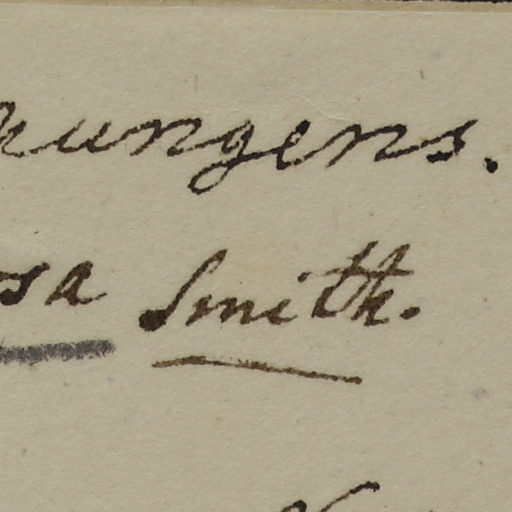 pungens.
sa Smith.